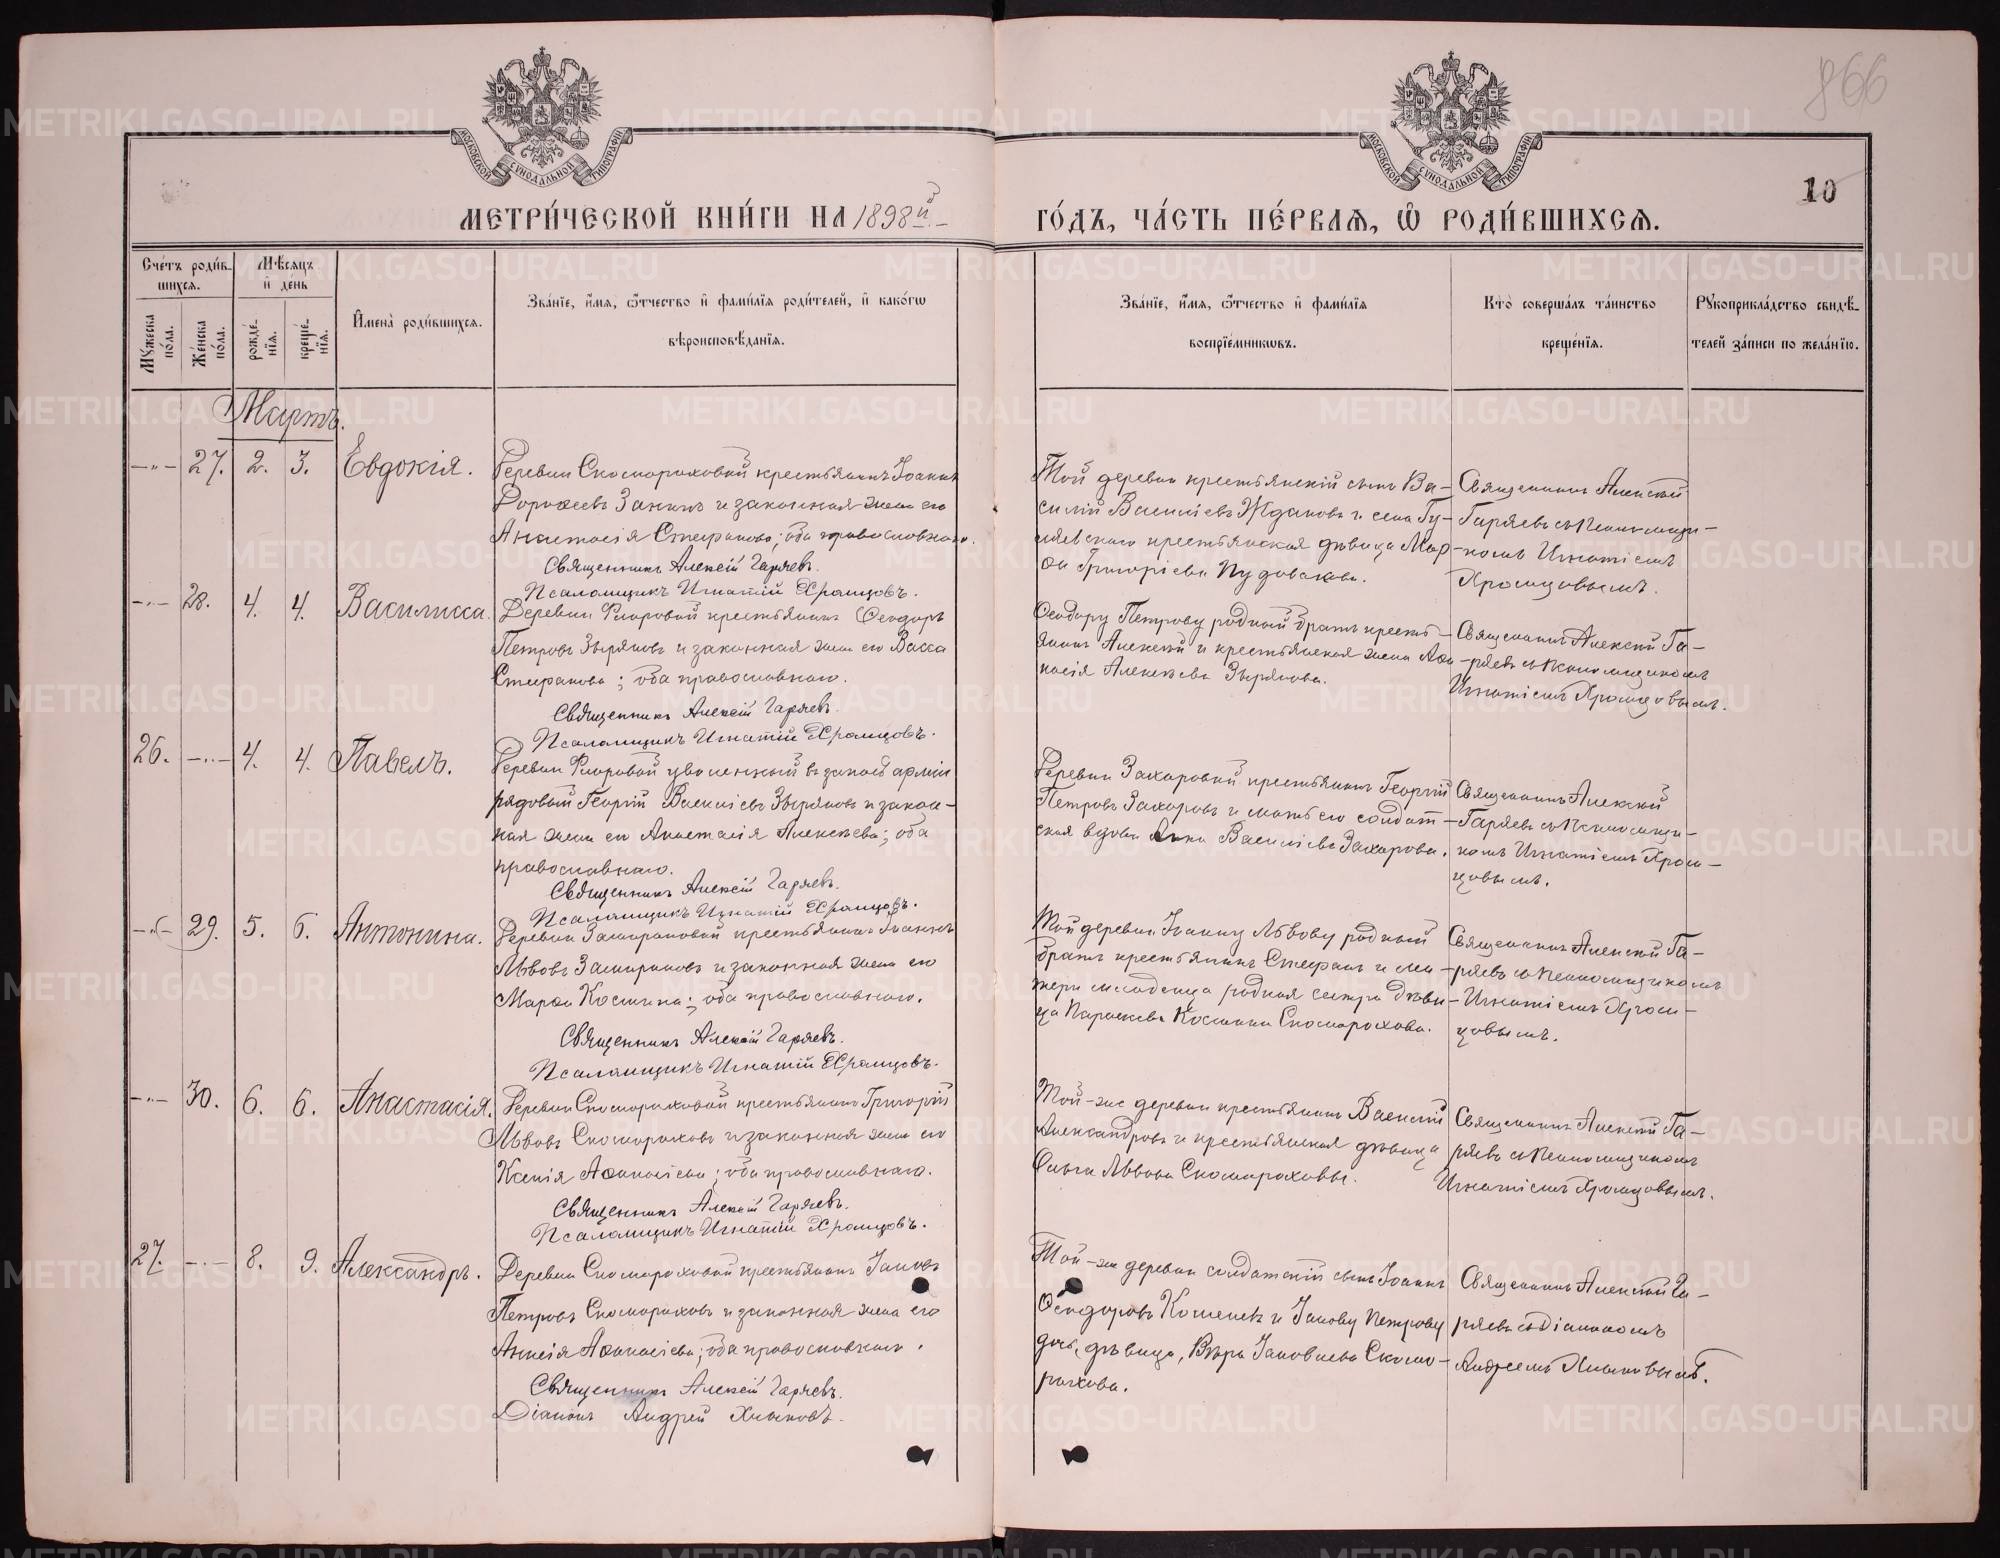 866
10
МЕТРИ́ЧЕСКОЙ КНИ́ГИ НА 1898й
ГО́ДЪ, ЧА́СТЬ ПЕ́РВАѦ, Ѡ РОДИ́ВШИХСѦ.
МОСКОВСКОЙ СѴНОДАЛЬНОЙ ТИПОГРАФІИ
МОСКОВСКОЙ СѴНОДАЛЬНОЙ ТИПОГРАФІИ
Сче́тъ роди́вшихсѧ.
Мꙋжеска по́ла.
Же́нска по́ла.
Мѣ́сѧцъ и҆ де́нь
рожде́нїѧ.
креще́нїѧ.
И҆мена̀ роди́вшихсѧ.
Зва́нїе, и҆́мѧ, ѻ҆́тчество и҆ фами́лїѧ роди́телей, и҆ како́гѡ
вѣроисповѣ́данїѧ.
Зва́нїе, и҆́мѧ, ѻ҆́тчество и҆ фами́лїѧ
воспрїе́мникѡвъ.
Кто̀ соверша́лъ та́инство
креще́нїѧ.
Рꙋкоприкла́дство свидѣ́-
телей за́писи по жела́нїю.
Мартъ.
27. 2. 3. Евдокія.
Деревни Скомороховой крестьянинъ Іоаннъ
Дорофеевъ Занинъ и законная жена его
Анастасія Стефанова; оба православнаго.
Священникъ Алексій Гаряевъ.
Псаломщикъ Игнатій Храмцовъ.
Той деревни крестьянскій сынъ Ва-
силій Васильевъ Ждановъ и села
крестьянская дѣвица Мар-
ѳа Григоріева Пудовкова.
Священникъ Алексій
Гаряевъ съ псаломщи-
комъ Игнатіемъ
Храмцовымъ.
28. 4. 4. Василисса.
Деревни Флоровой крестьянинъ Ѳеодоръ
Петровъ Зыряновъ и законная жена его Васса
Стефанова; оба православнаго.
Священникъ Алексій Гаряевъ.
Псаломщикъ Игнатій Храмцовъ.
Ѳеодору Петрову родный братъ кресть-
янинъ Алексій и крестьянская жена Аѳа-
насія Алексѣева Зырянова.
Священникъ Алексій Га-
ряевъ съ псаломщикомъ
Игнатіемъ Храмцовымъ.
26. 4. 4. Павелъ.
Деревни Флоровой уволенный въ запасъ арміи
рядовый Георгій Васильевъ Зыряновъ и закон-
ная жена его Анастасія Алексѣева; оба
православнаго.
Священникъ Алексій Гаряевъ.
Псаломщикъ Игнатій Храмцовъ.
Деревни Захаровой крестьянинъ Георгій
Петровъ Захаровъ и мать его солдат-
ская вдова Анна Васильева Захарова.
Священникъ Алексій
Гаряевъ съ псаломщи-
комъ Игнатіемъ Храм-
цовымъ.
29. 5. 6. Антонина.
Деревни Замараевой крестьянинъ Іоаннъ
Львовъ и законная жена его
Марѳа Космина; оба православнаго.
Священникъ Алексій Гаряевъ.
Псаломщикъ Игнатій Храмцовъ.
Той деревни Іоанну Львову родный
братъ крестьянинъ Стефанъ и ма-
тери младенца родная сестра дѣви-
ца Параскева Космина Скоморохова.
Священникъ Алексій Га-
ряевъ съ псаломщикомъ
Игнатіемъ Храм-
цовымъ.
30. 6. 6. Анастасія.
Деревни Скомороховой крестьянинъ Григорій
Львовъ Скомороховъ и законная жена его
Ксенія Аѳанасіева; оба православнаго.
Священникъ Алексій Гаряевъ.
Псаломщикъ Игнатій Храмцовъ.
Той-же деревни крестьянинъ Василій
Александровъ и крестьянская дѣвица
Ольга Львова Скомороховы.
Священникъ Алексій Га-
ряевъ съ псаломщикомъ
Игнатіемъ Храмцовымъ.
27. 8. 9. Александръ.
Деревни Скомороховой крестьянинъ Іаковъ
Петровъ Скомороховъ и законная жена его
Анисія Аѳанасіева; оба православнаго.
Священникъ Алексій Гаряевъ.
Діаконъ Андрей Хлыновъ.
Той-же деревни солдатскій сынъ Іоаннъ
Ѳеодоровъ и Іакову Петрову
дочь, дѣвица, Вѣра Іаковлева Скомо-
рохова.
Священникъ Алексій Га-
ряевъ съ Діакономъ
Андреемъ Хлыновымъ.
METRIKI.GASO-URAL.RU